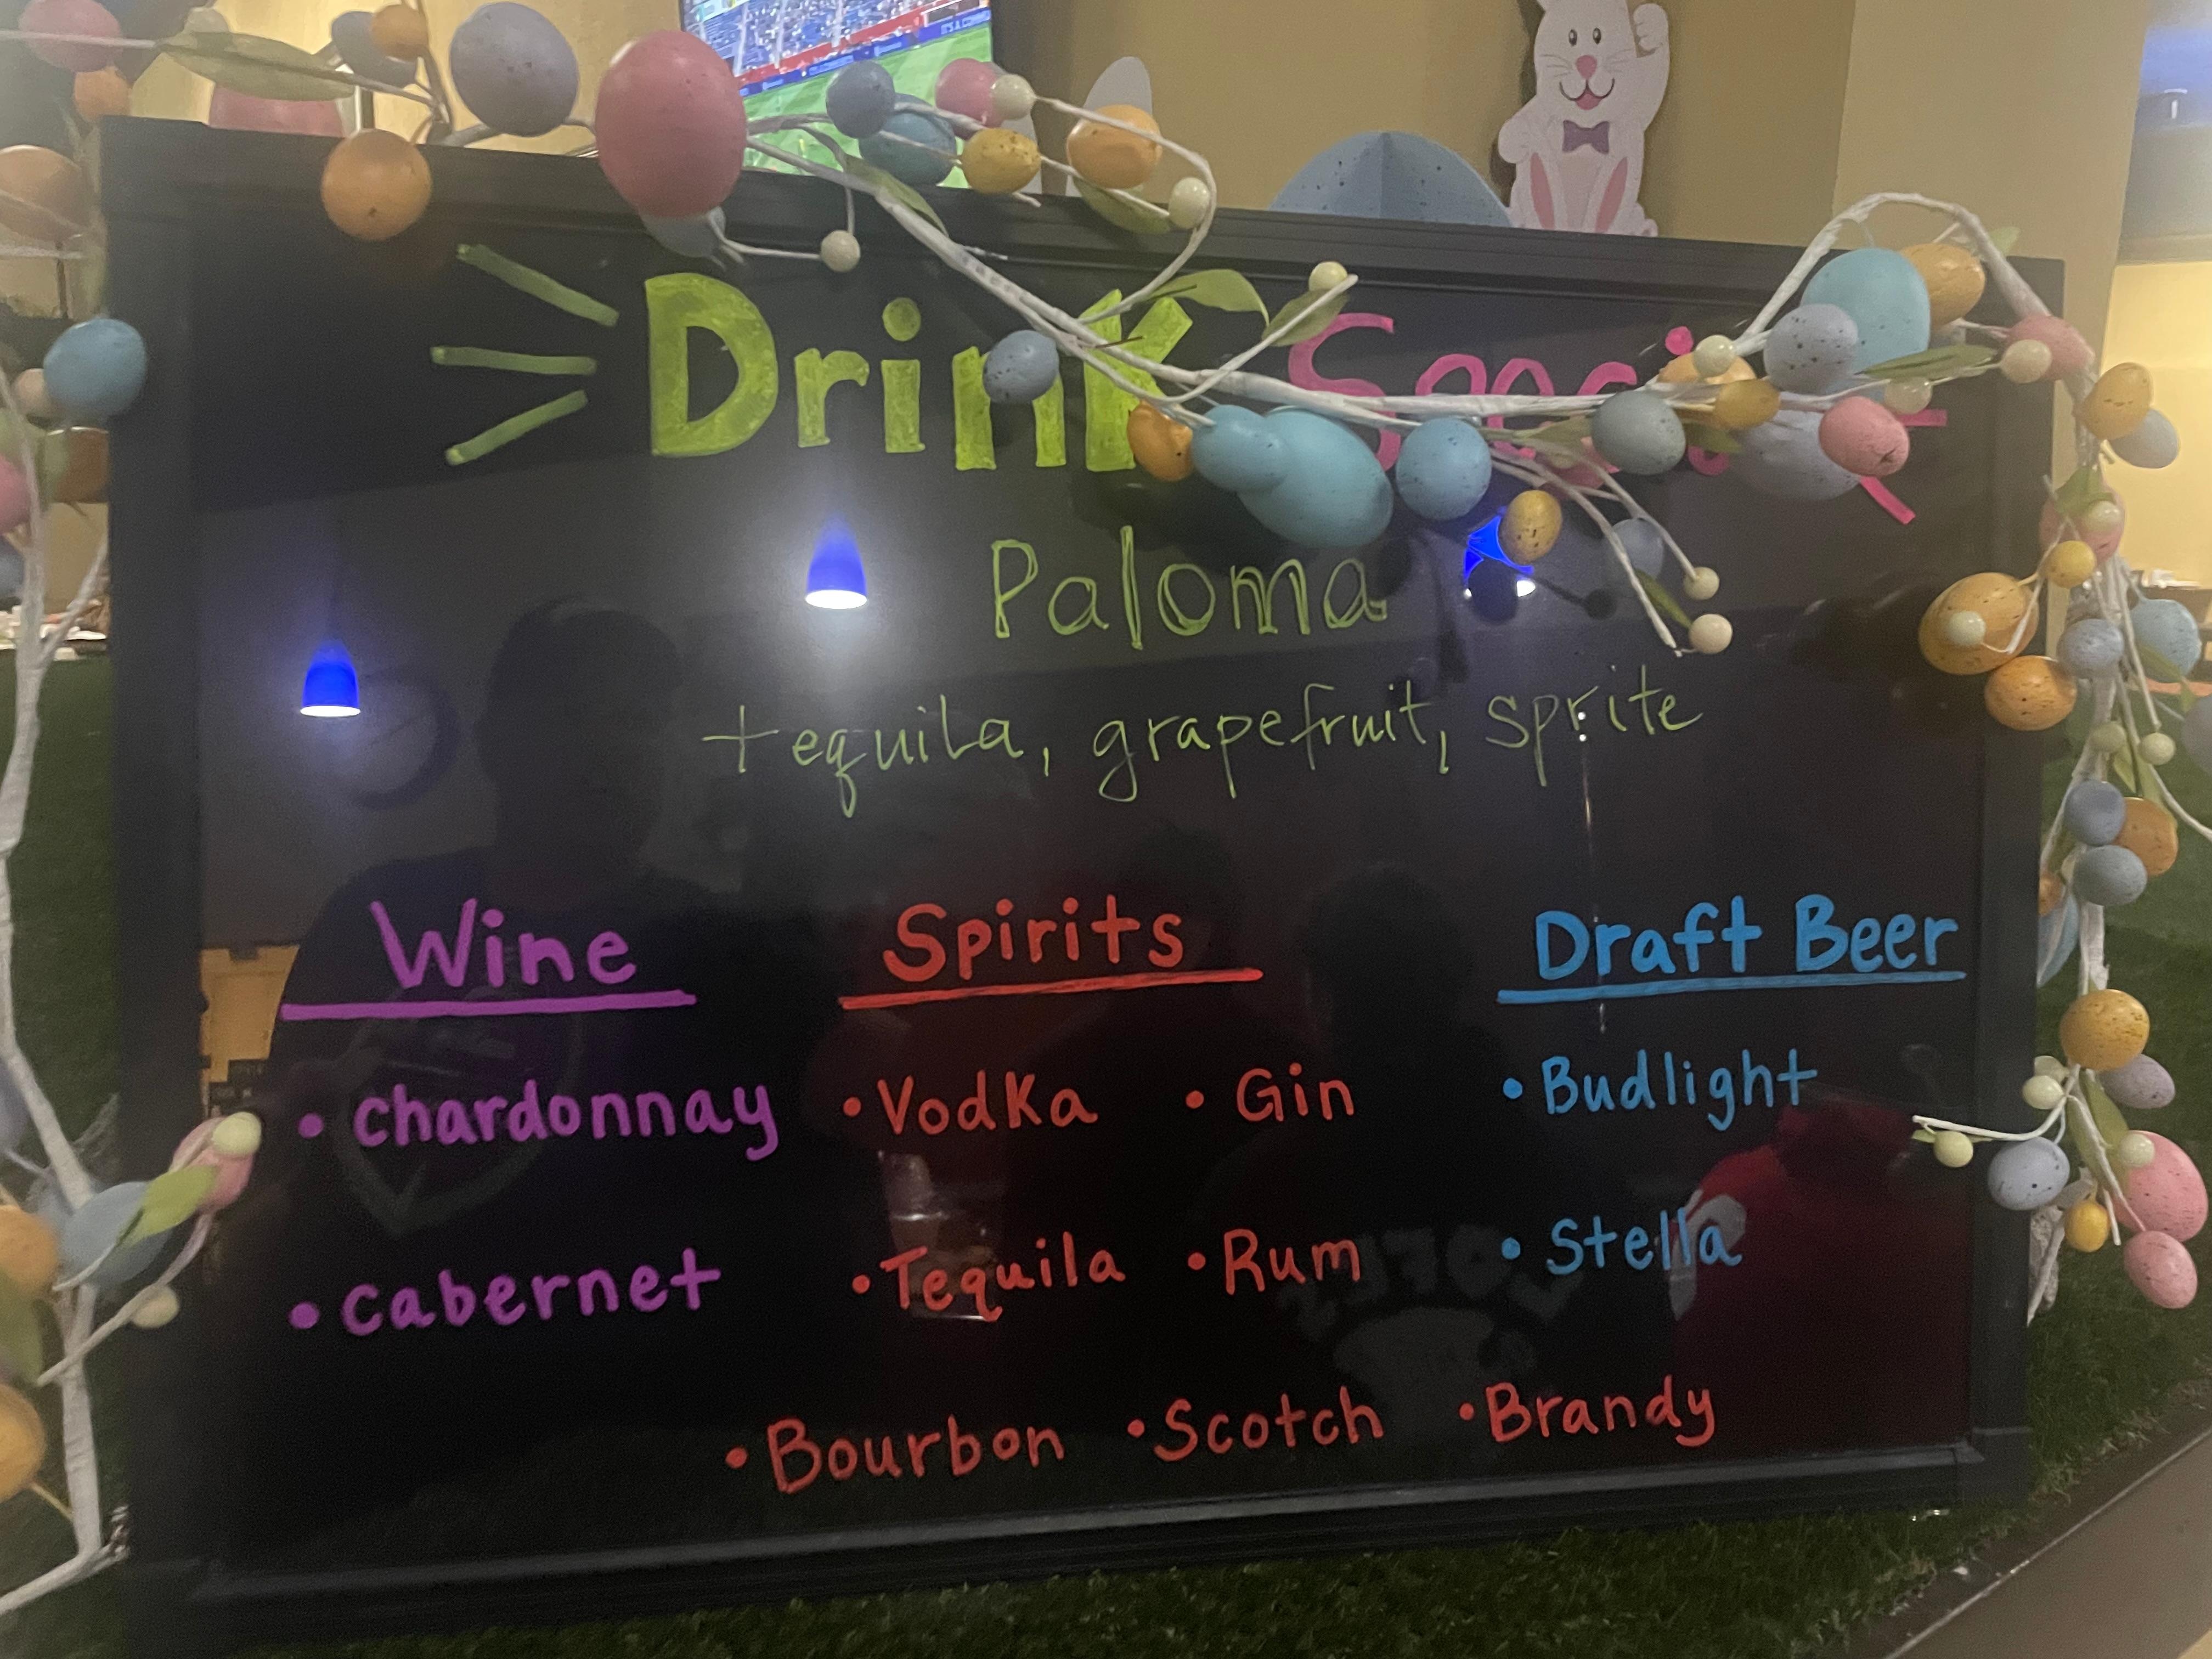 Drink
Paloma
tequila, grapefruit, sprite
Wine Spirits Draft Beer
• chardonnay • Vodka • Gin • Budlight
• cabernet • Tequila • Rum • Stella
• Bourbon • Scotch • Brandy